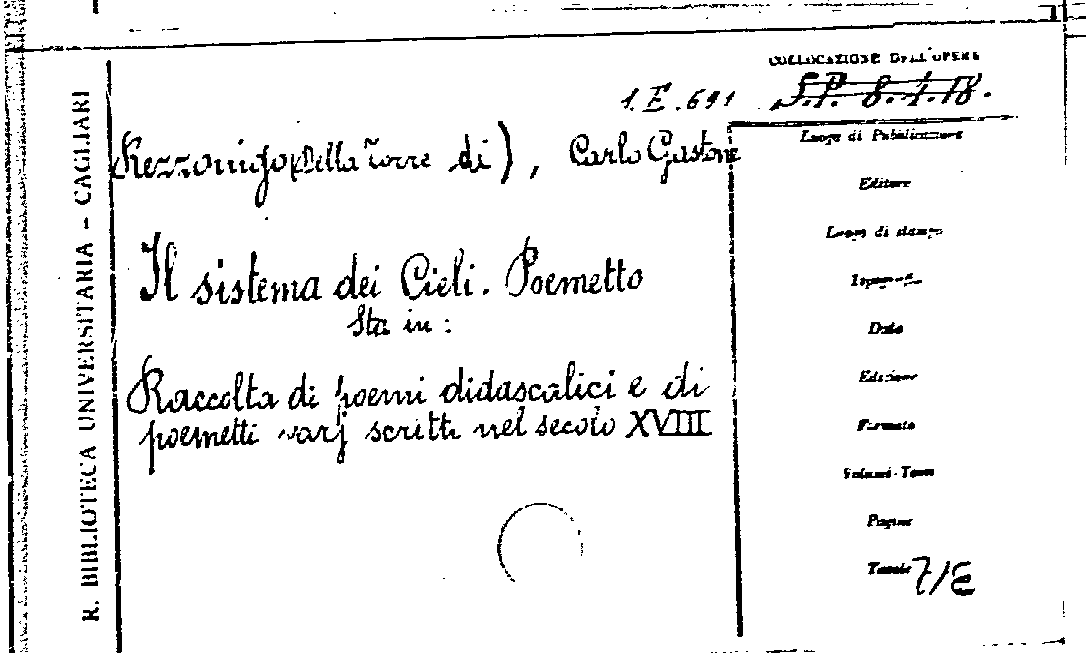 COLLOCAZIONE DELL'OPERA
1.E.691 S.P. 8.4.18.
Rezzonigo (Della Torre di), Carlo Gastone
Il sistema dei Cieli. Poemetto
Sta in:
Raccolta di poemi didascalici e di
poemetti varj scritti nel secolo XVIII
Luogo di Pubblicazione
Editore
Luogo di stampa
Data
Edizione
Formato
Volumi-Tomi
Pagine
Tavole 7/E
R. BIBLIOTECA UNIVERSITARIA - CAGLIARI